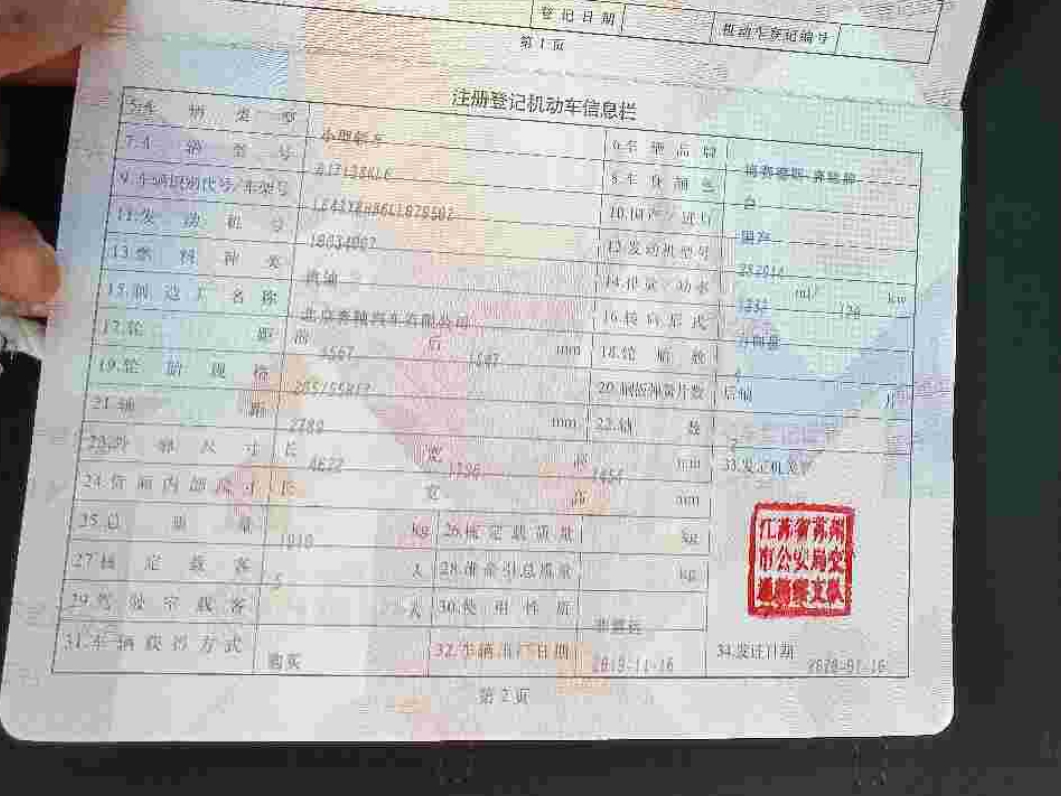 登记日期 机动车登记编号
第1页
注册登记机动车信息栏
5.车辆类型 小型轿车 6.车辆品牌 梅赛德斯-奔驰牌
7.车辆型号 8.车身颜色 白
9.车辆识别代号/车架号 10.国产/进口 国产
11.发动机号 12.发动机型号
13.燃料种类 汽油 14.排量/功率 ml/ kw
15.制造厂名称 北京奔驰汽车有限公司 16.转向形式 方向盘
17.轮距 前 后 mm 18.轮胎数 4
19.轮胎规格 20.钢板弹簧片数 后轴 片
21.轴距 2789 mm 22.轴数 2
23.外廓尺寸 长 4622 宽 1796 高 mm 33.发证机关章
24.货厢内部尺寸 长 宽 高 mm
25.总质量 1910 kg 26.核定载质量 kg
江苏省苏州市公安局交通警察支队
27.核定载客 5 人 28.准牵引总质量 kg
29.驾驶室载客 人 30.使用性质 非营运
31.车辆获得方式 购买 32.车辆出厂日期 2019-11-16 34.发证日期 2020-01-16
第2页